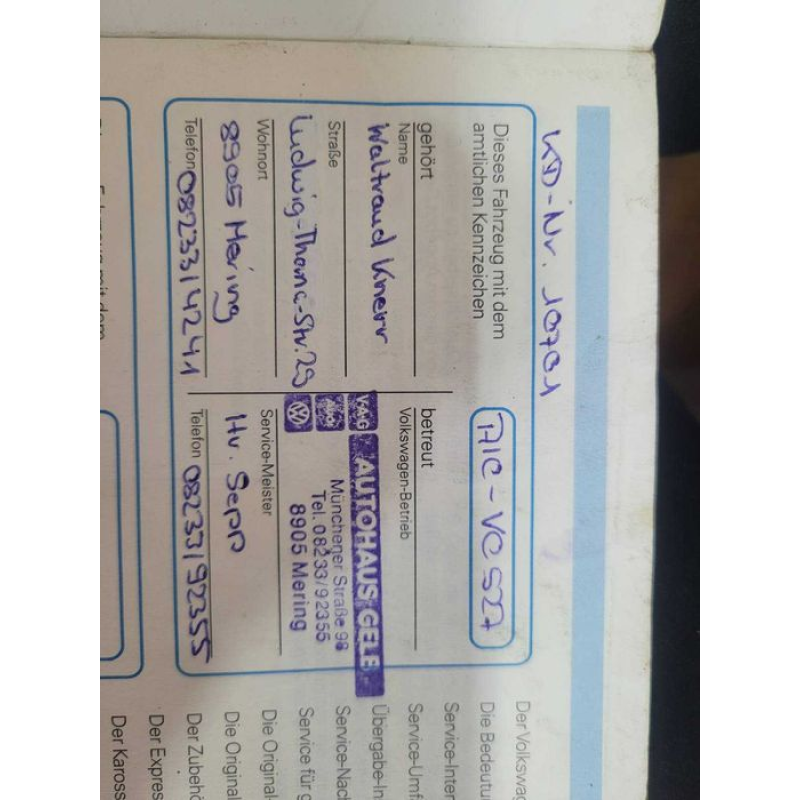 KD-Nr. 10701
Dieses Fahrzeug mit dem
amtlichen Kennzeichen
AIC-VC 527
gehört
Name
Waltraud Knerr
Straße
Ludwig-Thoma-Str. 29
Wohnort
8905 Mering
Telefon 08233/4241
betreut
Volkswagen-Betrieb
V·A·G
Audi
AUTOHAUS GELB
Münchener Straße 98
Tel. 08233/92355
8905 Mering
Service-Meister
Hr. Sepp
Telefon 08233/92355
Der Volkswag
Die Bedeutu
Service-Inter
Service-Umf
Übergabe-In
Service-Nach
Service für g
Die Original
Die Original
Der Zubehö
Der Expres
Der Kaross